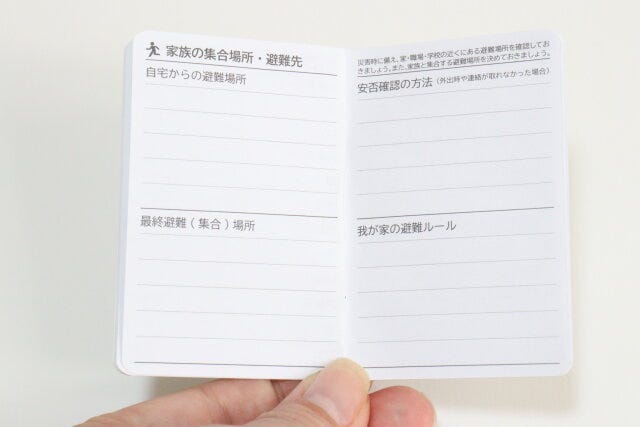 家族の集合場所・避難先
自宅からの避難場所
最終避難(集合)場所
災害時に備え、家・職場・学校の近くにある避難場所を確認してお
きましょう。また、家族と集合する避難場所を決めておきましょう。
安否確認の方法(外出時や連絡が取れなかった場合)
我が家の避難ルール